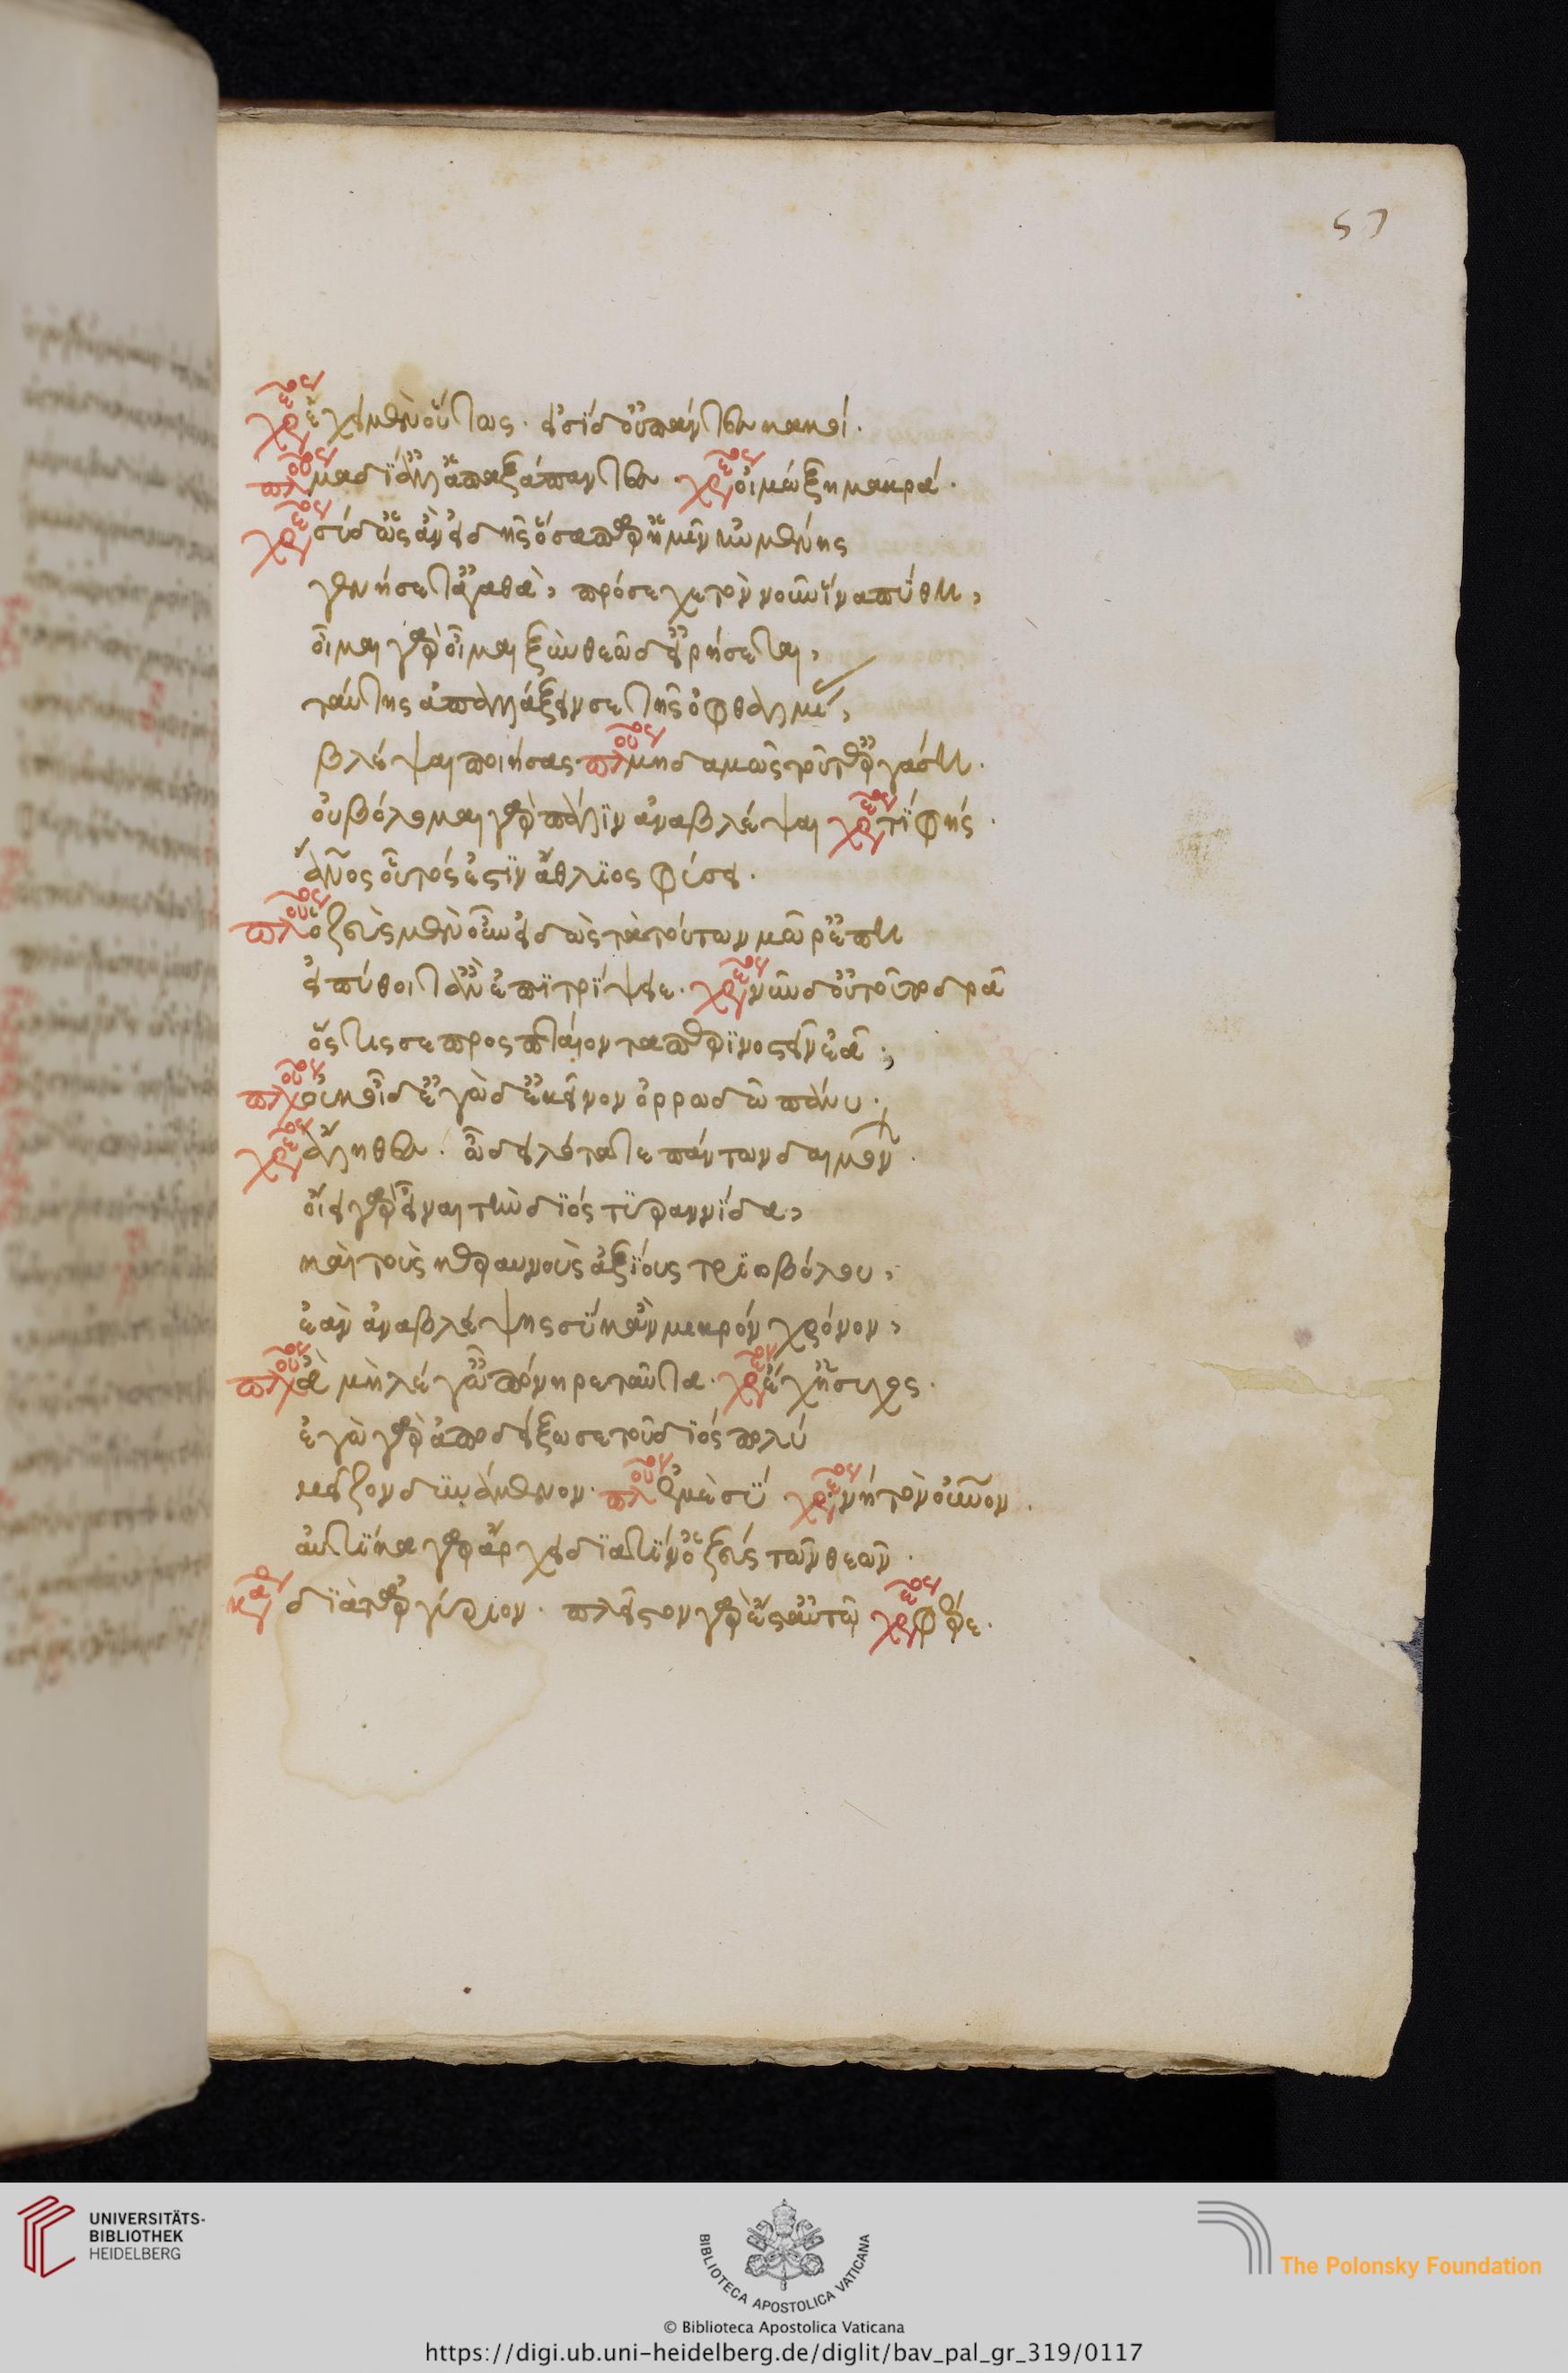 χρε ἔχει μὲν οὕτως. εἰσὶ δ' οὐ πάντες κακοί.
πλου μὰ δί' ἀλλ' ἁπαξάπαντες. χρε οἰμώξη μακρά.
χρε σὺ δ' ὡς ἂν εἰδῇς ὅσα παρ' ἡμῖν κἂν μένης
γενήσετ' ἀγαθὰ, πρόσεχε τὸν νοῦν ἵνα πύθη,
οἶμαι γὰρ οἶμαι ξὺν θεῶ δ' εἰρήσεται,
ταύτης ἀπαλλάξειν σε τῆς ὀφθαλμίας,
βλέψαι ποιήσας. πλου μηδαμῶς τοῦτ' ἐργάση.
οὐ βούλομαι γὰρ πάλιν ἀναβλέψαι χρε τί φής.
ἄνθρωπος οὗτός ἐστιν ἄθλιος φύσει.
πλου ὁ ζεὺς μὲν οὖν εἰδὼς τὰ τούτων μῶρ' ἔπη
εἰ πύθοιτ' ἂν ἐπιτρίψειε. χρε νῦν δ' οὐ τοῦτο δρᾶ
ὅστις σε προσπταίοντα περινοστεῖν ἐᾶ;
πλου οὐκ οἶδ' ἐγὼ δ' ἐκεῖνον ὀρρωδῶ πάνυ.
χρε ἄληθες. ὦ δειλότατε πάντων δαιμόνων.
οἴει γὰρ εἶναι τὴν διός τυραννίδα,
καὶ τοὺς κεραυνοὺς ἀξίους τριωβόλου,
ἐὰν ἀναβλέψης σὺ κἂν μικρόν χρόνον,
πλου ἆ μὴ λέγ' ὦ πόνηρε ταῦτα. χρε ἔχ' ἥσυχος.
ἐγὼ γὰρ ἀποδείξω σε τοῦ διός πολύ
μεῖζον δυνάμενον. πλου ἐμὲ σύ χρε νή τὸν οὐρανόν.
αὐτίκα γὰρ ἄρχει διὰ τίν' ὁ ζεύς τῶν θεῶν.
καρ διὰ τἀργύριον. πλεῖστον γὰρ ἔστ' αὐτῶ χρε φέρε.
57
UNIVERSITÄTS-
BIBLIOTHEK
HEIDELBERG
BIBLIOTECA APOSTOLICA VATICANA
The Polonsky Foundation
© Biblioteca Apostolica Vaticana
https://digi.ub.uni-heidelberg.de/diglit/bav_pal_gr_319/0117